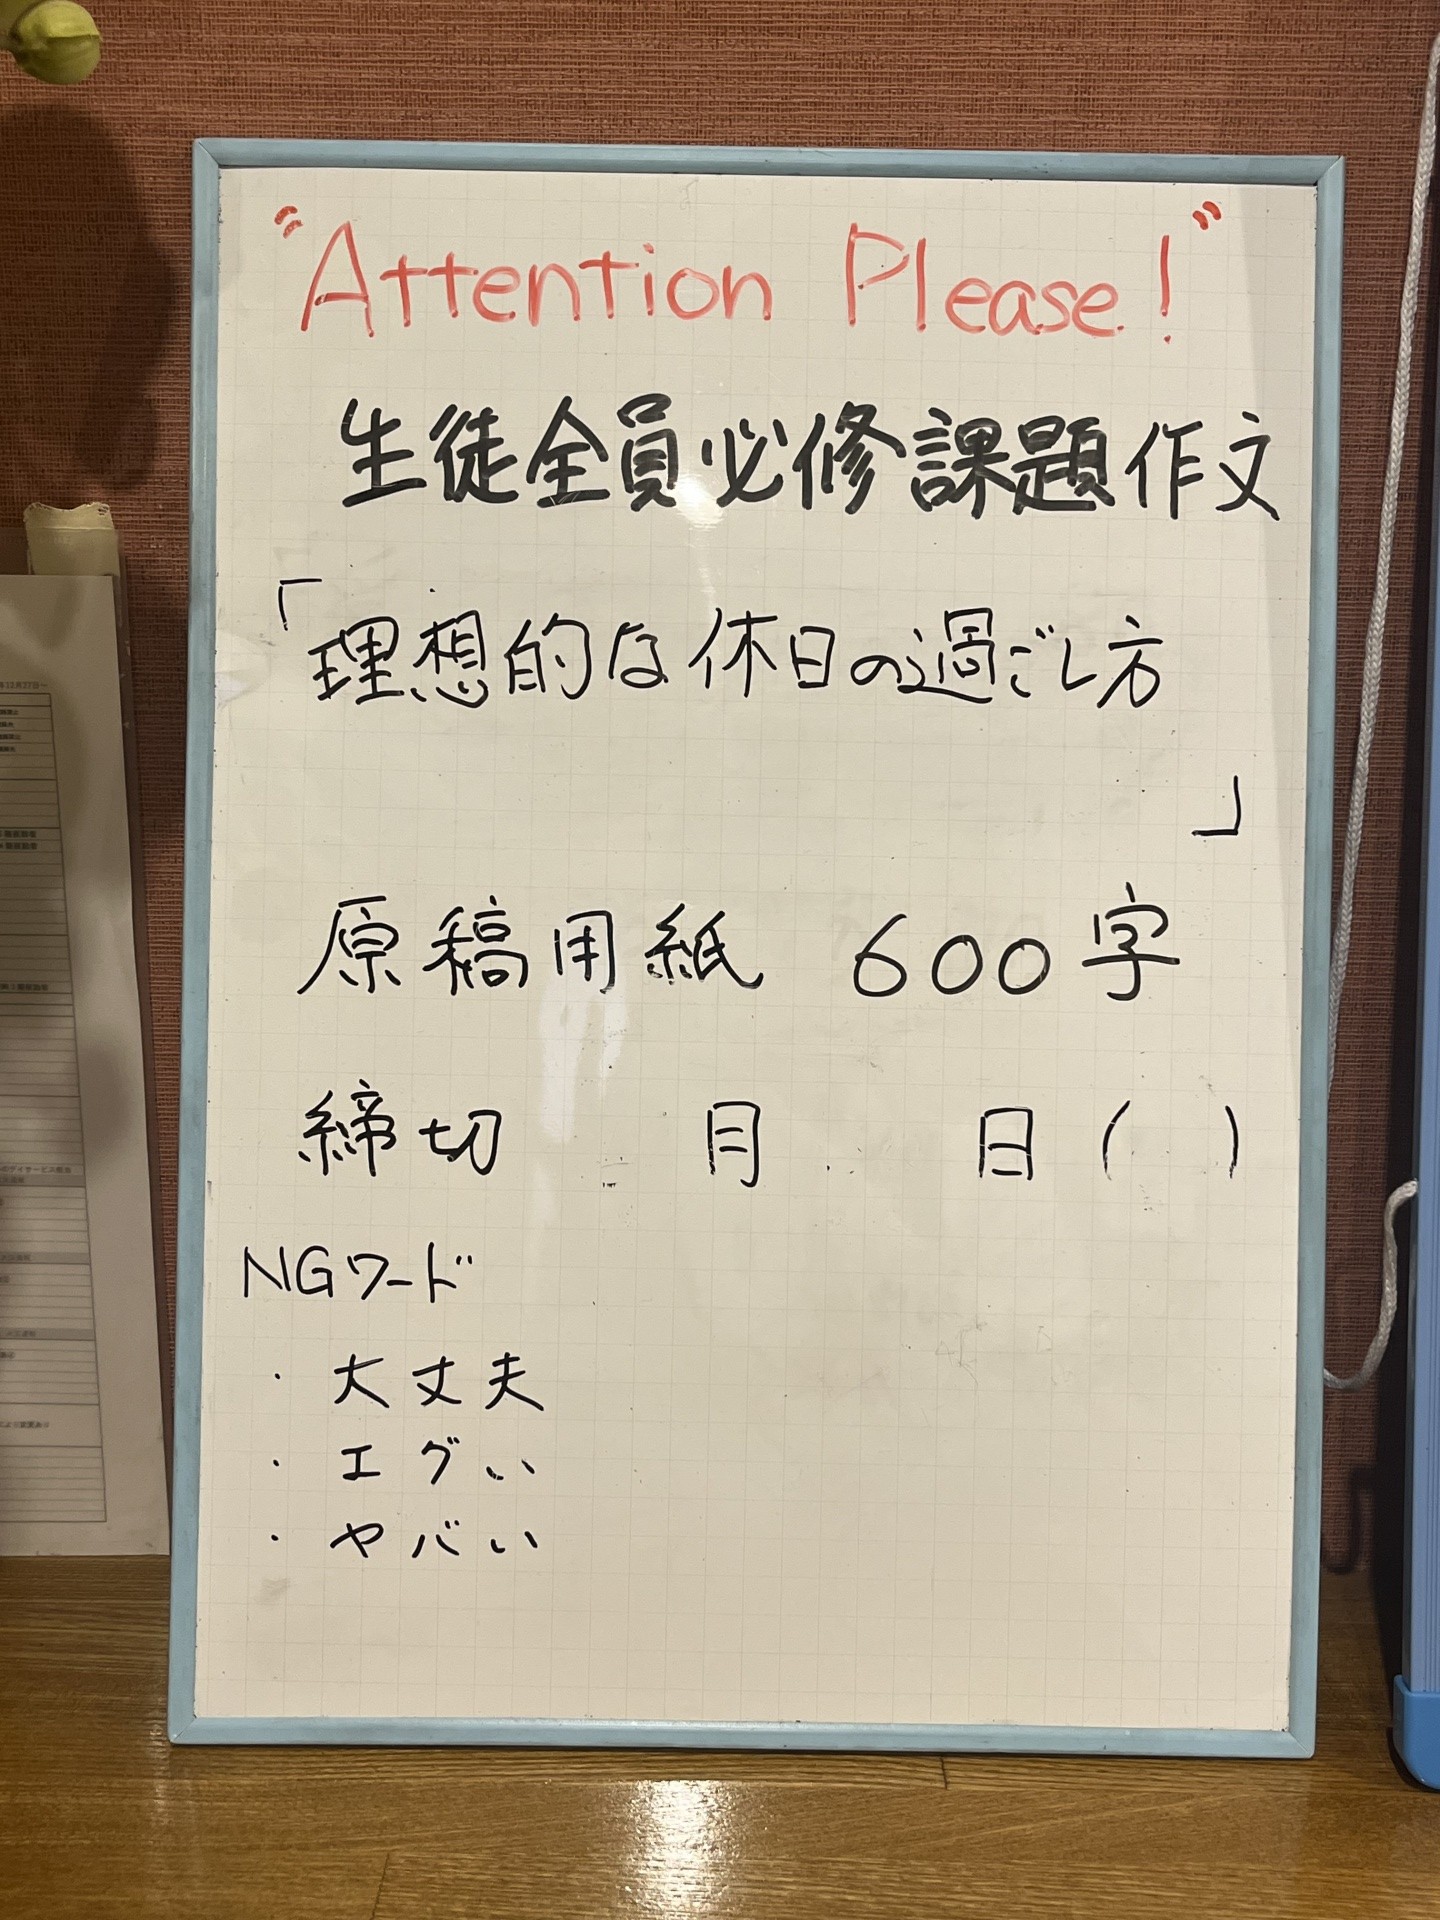 "Attention Please!"
生徒全員必修課題作文
「理想的な休日の過ごし方
」
原稿用紙 600字
締切 月 日( )
NGワード
・大丈夫
・エグい
・ヤバい